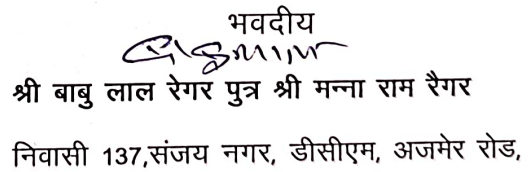 भवदीय
श्री बाबु लाल रेगर पुत्र श्री मन्ना राम रैगर
निवासी 137,संजय नगर, डीसीएम, अजमेर रोड,